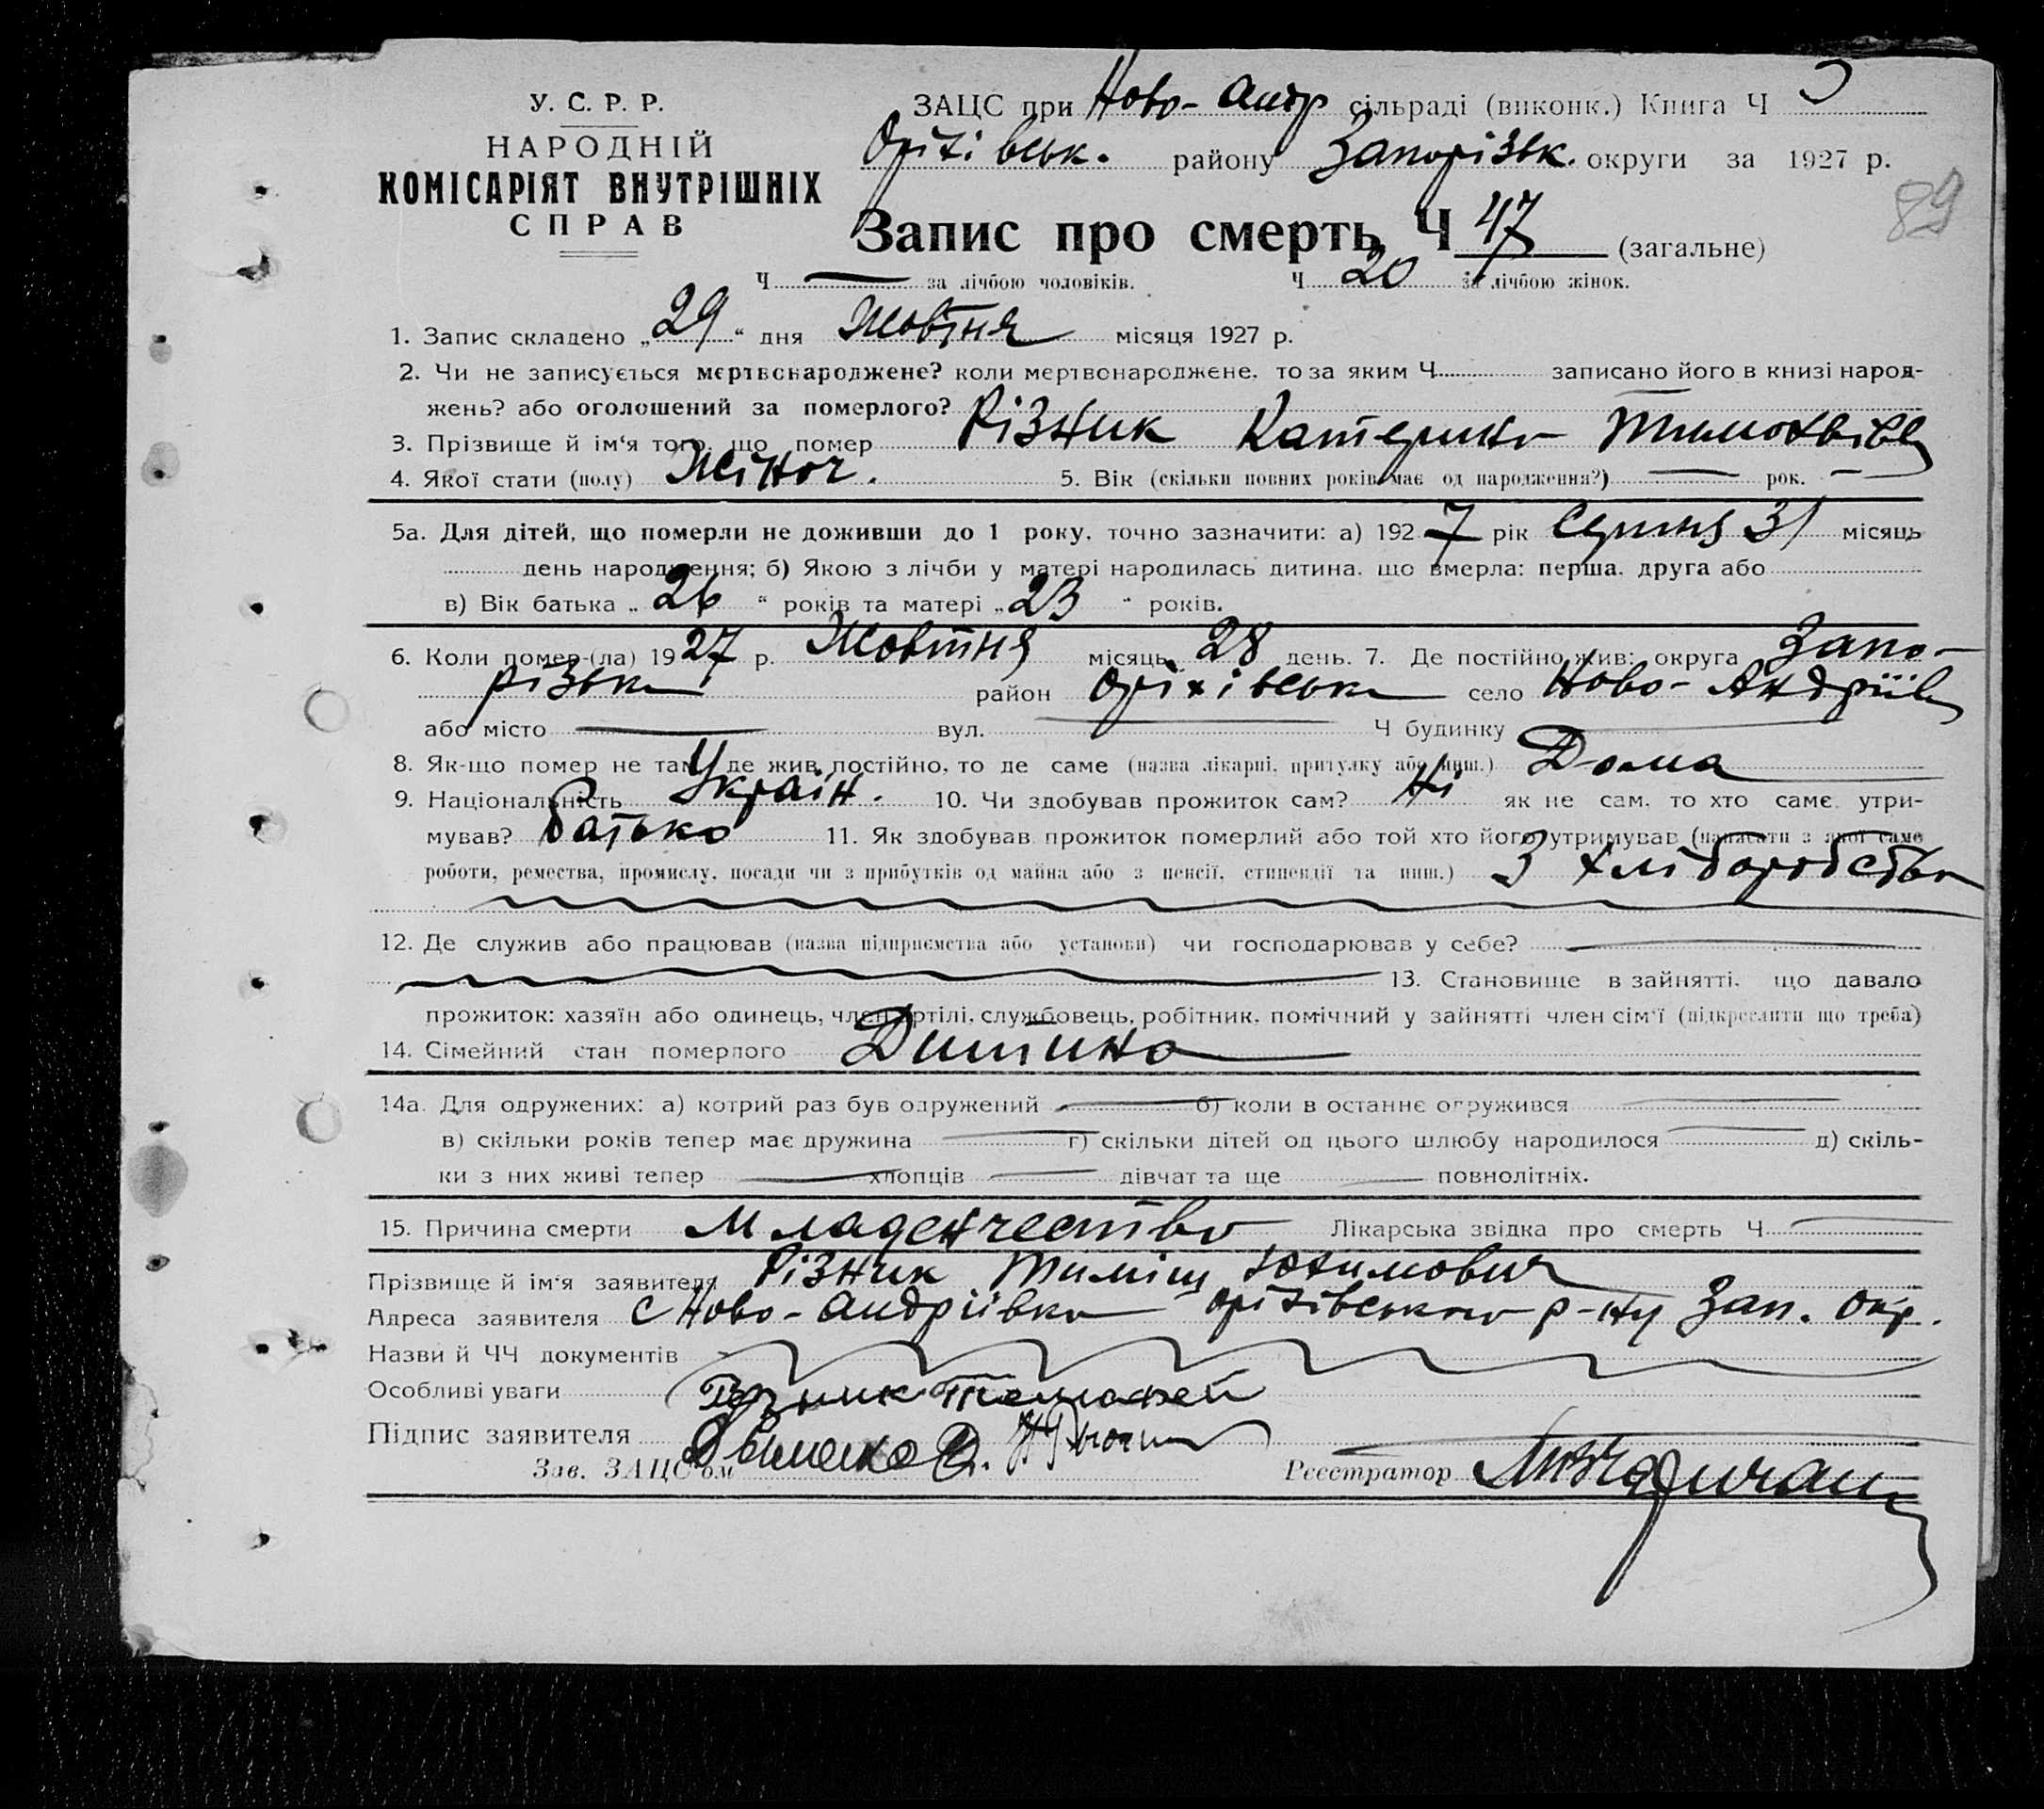 У. С. Р. Р.
НАРОДНІЙ
КОМІСАРІЯТ ВНУТРІШНІХ
СПРАВ
ЗАЦС при Ново-Андр сільраді (виконк.) Книга Ч
Оріхівськ. району Запорізьк. округи за 1927 р.
89
Запис про смерть Ч 47 (загальне)
Ч — за лічбою чоловіків. Ч 20 за лічбою жінок.
1. Запис складено „29“ дня Жовтня місяця 1927 р.
2. Чи не записується мертвонароджене? коли мертвонароджене, то за яким Ч записано його в книзі народ-
жень? або оголошений за померлого?
3. Прізвище й ім'я того, що помер Різник Катерина Тимохвівн
4. Якої стати (полу) Жіноч. 5. Вік (скільки повних років має од народження?) — рок. —
5а. Для дітей, що померли не доживши до 1 року, точно зазначити: а) 1927 рік Серпня 31 місяць
день народження; б) Якою з лічби у матері народилась дитина, що вмерла: перша, друга або
в) Вік батька „26“ років та матері „23“ років.
6. Коли помер-(ла) 1927 р. Жовтня місяць 28 день. 7. Де постійно жив: округа Запо-
різька район Оріхівська село Ново-Андріїв
або місто — вул. — Ч будинку —
8. Як-що помер не там, де жив постійно, то де саме (назва лікарні, притулку або инш.) Дома
9. Національність Україн. 10. Чи здобував прожиток сам? Ні як не сам, то хто саме утри-
мував? батько 11. Як здобував прожиток померлий або той хто його утримував (написати з якої саме
роботи, ремества, промислу, посади чи з прибутків од майна або з пенсії, стипендії та инш.) З хліборобства
12. Де служив або працював (назва підприємства або установи) чи господарював у себе? —
13. Становище в зайнятті, що давало
прожиток: хазяїн або одинець, член артілі, службовець, робітник, помічний у зайнятті член сім'ї (підкреслити що треба)
14. Сімейний стан померлого Дитина
14а. Для одружених: а) котрий раз був одружений — б) коли в останнє одружився —
в) скільки років тепер має дружина — г) скільки дітей од цього шлюбу народилося — д) скіль-
ки з них живі тепер — хлопців — дівчат та ще — повнолітніх.
15. Причина смерти Младенчество Лікарська звідка про смерть Ч —
Прізвище й ім'я заявителя Різник Тиміш Юхимович
Адреса заявителя С Ново-Андріївка Оріхівського р-ну Зап. Окр.
Назви й ЧЧ документів
Особливі уваги
Підпис заявителя
Зав. ЗАЦС'ом
Реєстратор